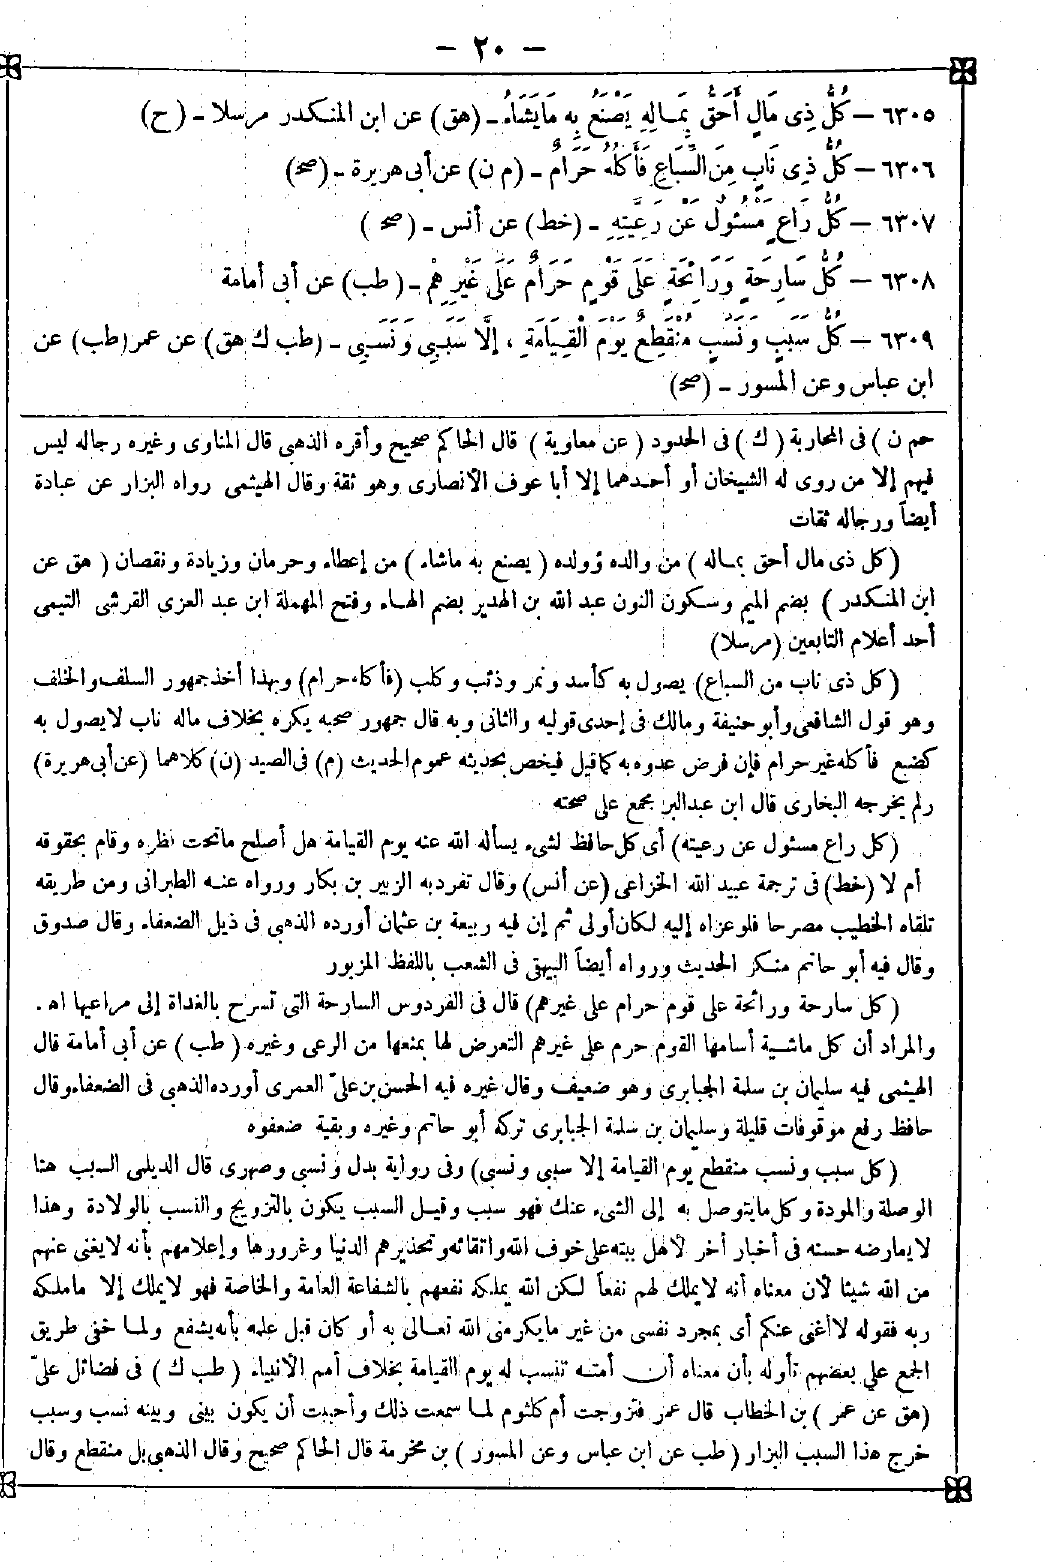 - ٢٠ -
٦٣٠٥ - كُلُّ ذِى مَالٍ أَحَقُّ بِمَـالِهِ يَصْنَعُ بِهِ مَايَشَاءُ - (هق) عن ابن المنكدر مرسلا - (ح)
٦٣٠٦ - كُلُّ ذِى نَابٍ مِنَ السِّبَاعِ فَأَكْلُهُ حَرَامٌ - (م ن) عن أبى هريرة - (صح)
٦٣٠٧ - كُلُّ رَاعٍ مَسْئُولٌ عَنْ رَعِيَّتِهِ - (خط) عن أنس - (صح)
٦٣٠٨ - كُلُّ سَارِحَةٍ وَرَائِحَةٍ عَلَى قَوْمٍ حَرَامٌ عَلَى غَيْرِهِمْ - (طب) عن أبى أمامة
٦٣٠٩ - كُلُّ سَبَبٍ وَنَسَبٍ مُنْقَطِعٌ يَوْمَ الْقِيَامَةِ ، إِلَّا سَبَبِى وَنَسَبِى - (طب ك هق) عن عمر (طب) عن
ابن عباس وعن المسور - (صح)
حم ن ) فى المحاربة ( ك ) فى الحدود ( عن معاوية ) قال الحاكم صحيح وأقره الذهبى قال المناوى وغيره رجاله ليس
فيهم إلا من روى له الشيخان أو أحدهما إلا أبا عوف الأنصارى وهو ثقة وقال الهيثمى رواه البزار عن عبادة
أيضاً ورجاله ثقات
(كل ذى مال أحق بمـاله ) من والده وولده ( يصنع به ماشاء ) من إعطاء وحرمان وزيادة ونقصان ( هق عن
ابن المنكدر ) بضم الميم وسكون النون عبد الله بن الهدير بضم الهـاء وفتح المهملة ابن عبد العزى القرشى التيمى
أحد أعلام التابعين (مرسلا)
(كل ذى ناب من السباع) يصول به كأسد ونمر وذئب وكلب (فأكله حرام) وبهذا أخذ جمهور السلف والخلف
وهو قول الشافعى وأبو حنيفة ومالك فى إحدى قوليه والثانى وبه قال جمهور صحبه يكره بخلاف ماله ناب لايصول به
كضبع فأكله غير حرام فإن فرض عدوه به كما قيل فيخص بحديثه عموم الحديث (م) فى الصيد (ن) كلاهما (عن أبى هريرة)
ولم يخرجه البخارى قال ابن عبد البر مجمع على صحته
(كل راع مسئول عن رعيته) أى كل حافظ لشىء يسأله الله عنه يوم القيامة هل أصلح ماتحت نظره وقام بحقوقه
أم لا (خط) فى ترجمة عبيد الله الخزاعى (عن أنس) وقال تفرد به الزبير بن بكار ورواه عنـه الطبرانى ومن طريقه
تلقاه الخطيب مصرحا فلو عزاه إليه لكان أولى ثم إن فيه ربيعة بن عثمان أورده الذهبى فى ذيل الضعفاء وقال صدوق
وقال فيه أبو حاتم منكر الحديث ورواه أيضاً البيهقى فى الشعب باللفظ المزبور
(كل سارحة ورائحة على قوم حرام على غيرهم) قال فى الفردوس السارحة التى تسرح بالغداة إلى مراعيها اهـ .
والمراد أن كل ماشية أسامها القوم حرم على غيرهم التعرض لها بمنعها من الرعى وغيره ( طب ) عن أبى أمامة قال
الهيثمى فيه سليمان بن سلمة الجبابرى وهو ضعيف وقال غيره فيه الحسن بن علىّ العمرى أورده الذهبى فى الضعفاء وقال
حافظ رفع موقوفات قليلة وسليمان بن سلمة الجبابرى تركه أبو حاتم وغيره وبقية ضعفوه
(كل سبب ونسب منقطع يوم القيامة إلا سببى ونسبى) وفى رواية بدل ونسبى وصهرى قال الديلمى السبب هنا
الوصلة والمودة وكل مايتوصل به إلى الشىء عنك فهو سبب وقيـل السبب يكون بالتزويج والنسب بالولادة وهذا
لايعارضه حسنه فى أخبار أخر لأهل بيته على خوف الله واتقائه وتحذيرهم الدنيا وغرورها وإعلامهم بأنه لايغنى عنهم
من الله شيئا لأن معناه أنه لايملك لهم نفعاً لكن الله يملكه نفعهم بالشفاعة العامة والخاصة فهو لايملك إلا ماملكه
ربه فقوله لاأغنى عنكم أى بمجرد نفسى من غير مايكرمنى الله تعـالى به أو كان قبل علمه بأنه يشفع ولمـا خفى طريق
الجمع على بعضهم تأوله بأن معناه أن أمتـه تنسب له يوم القيامة بخلاف أمم الأنبياء ( طب ك ) فى فضائل علىّ
(هق عن عمر ) بن الخطاب قال عمر فتزوجت أم كلثوم لمـا سمعت ذلك وأحببت أن يكون بينى وبينه نسب وسبب
خرج هذا السبب البزار ( طب عن ابن عباس وعن المسور ) بن مخرمة قال الحاكم صحيح وقال الذهبى بل منقطع وقال